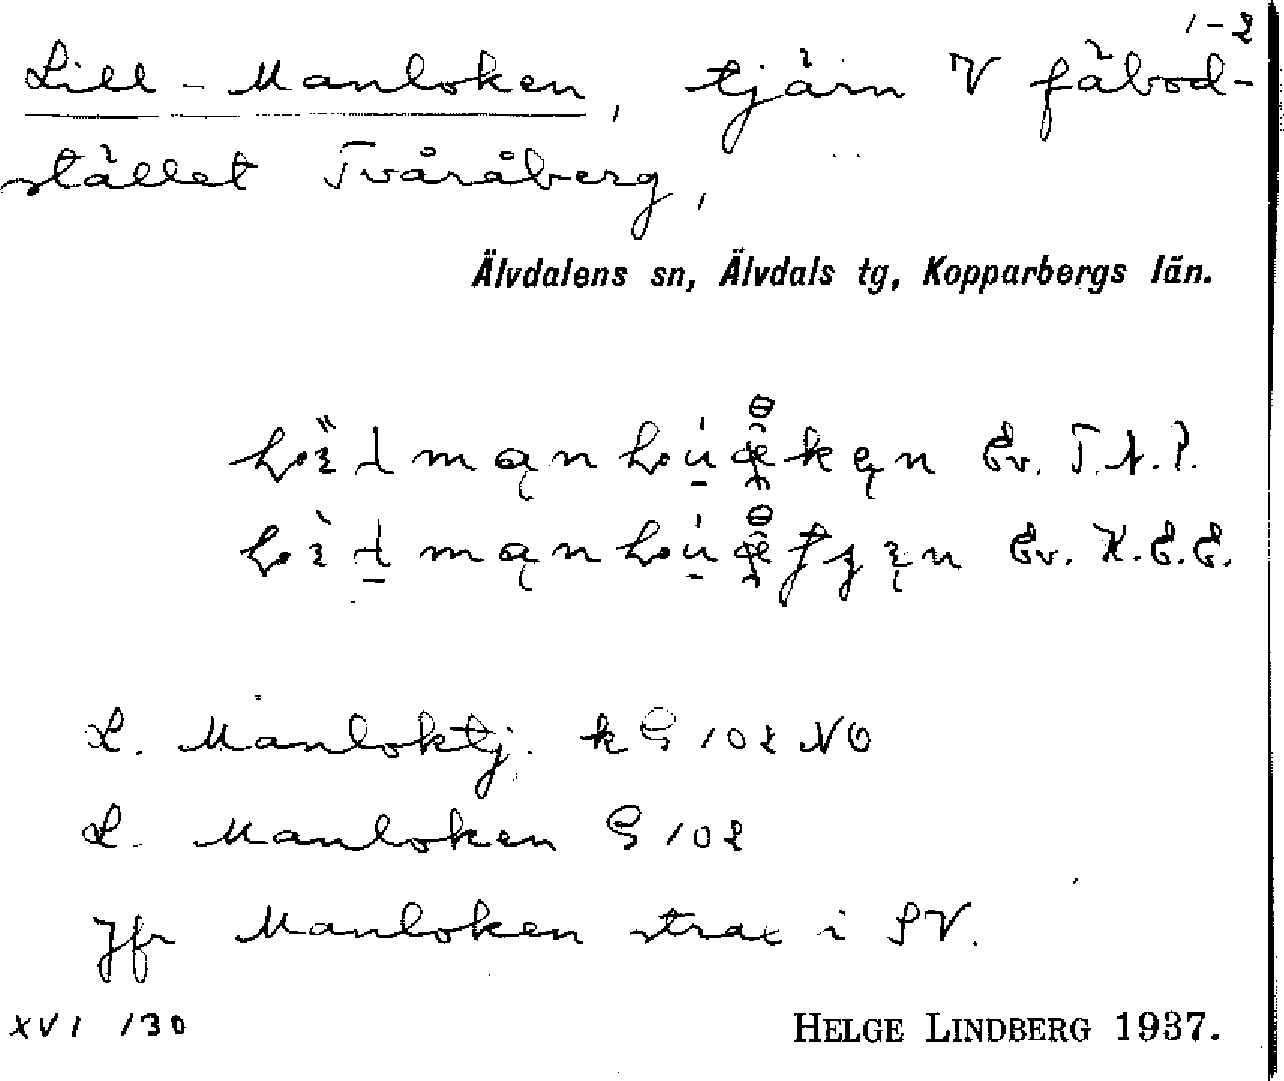 1-2
Lill-Manloken, tjärn V fäbod-
stället Tvåråberg,
Älvdalens sn, Älvdals tg, Kopparbergs län.
Ev. T.A.P.
Ev. K.E.E.
L. Manloktj. k G 102 NO
L. Manloken G 102
Jfr Manloken strax i SV.
XVI /30
HELGE LINDBERG 1937.